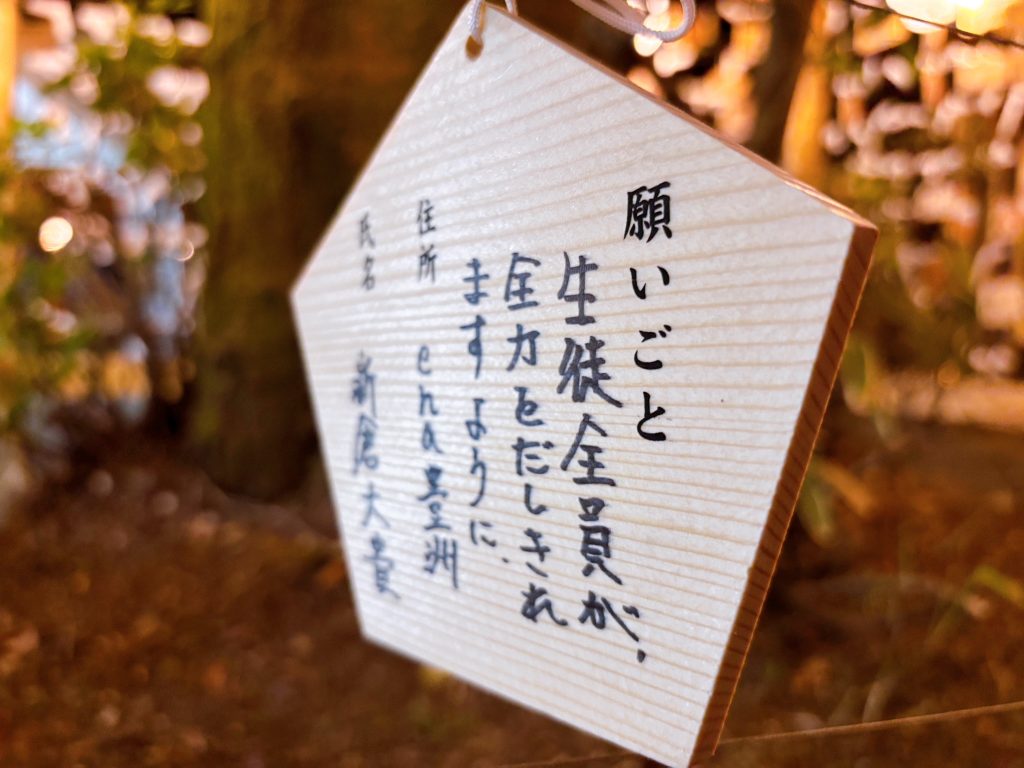 願いごと
生徒全員が、
全力をだしきれ
ますように、
住所 ena豊洲
氏名 新倉大貴